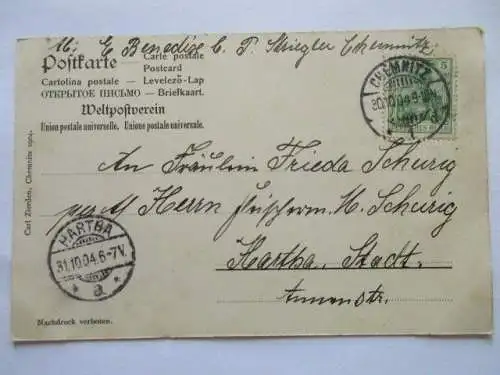 M. E Benedix b. P. Striegler Chemnitz.
Postkarte — Carte postale
Postcard
Cartolina postale — Levelező-Lap
ОТКРЫТОЕ ПИСЬМО — Brefkaart.
Weltpostverein
Union postale universelle. Unione postale universale.
5
CHEMNITZ
30.10.04.9-10
An Fräulein Frieda Schurig
Herrn M. Schurig
Hartha. Stadt.
Annenstr.
HARTHA
31.10.04.6-7V.
a
Carl Zierden, Chemnitz 1904.
Nachdruck verboten.